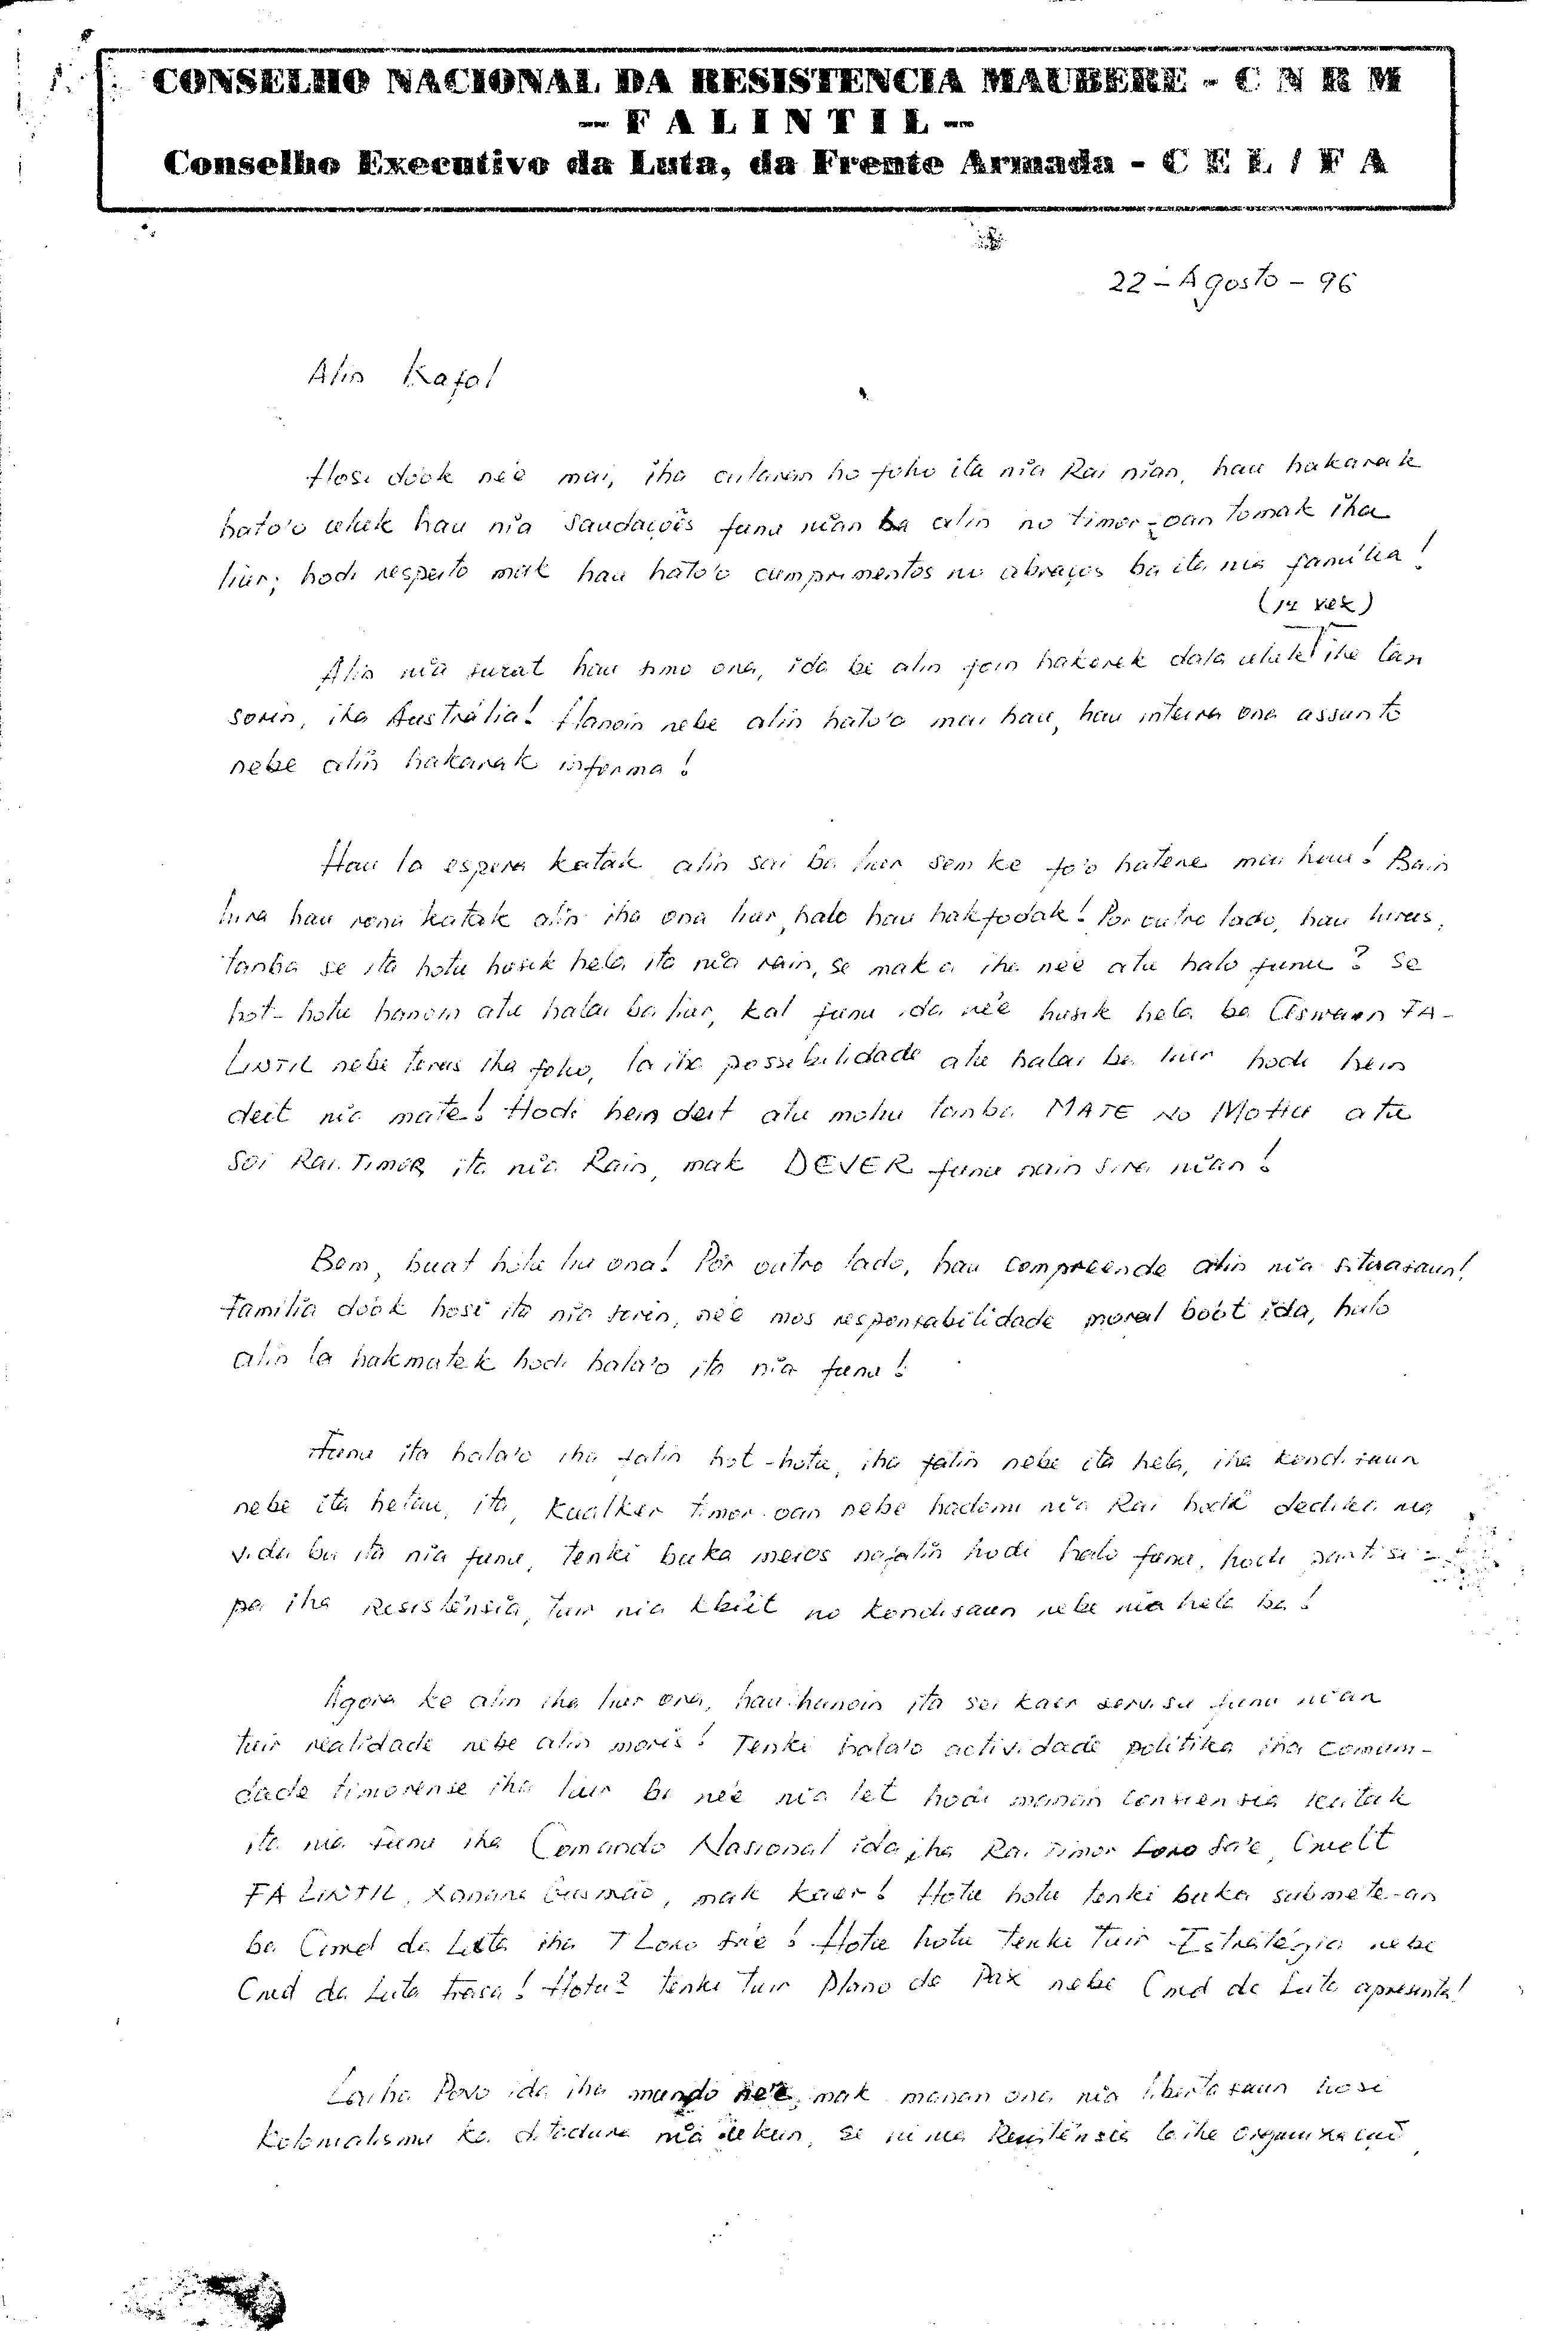 CONSELHO NACIONAL DA RESISTENCIA MAUBERE - C N R M
- F A L I N T I L -
Conselho Executivo da Luta, da Frente Armada - C E L / F A
22 - Agosto - 96
Alin Kafol
Hosi dook né'e mai, iha cularan ho foho ita nia Rai nian, hau hakarak
hato'o uluk hau nia Saudações funu nian ba alin no timor-oan tomak iha
liur; hodi respeito mak hau hato'o cumprimentos no abraços ba ita nia família!
(1ª vez)
Alin nia surat hau simo ona, ida be alin foin hakerek dala uluk iha tasi
sorin, iha Austrália! Hanoin nebe alin hato'o mai hau, hau inteira ona assunto
nebe alin hakarak informa!
Hau la espera katak alin sai ba liur sem ke fo'o hatene mai hau! Bain
hira hau rona katak alin iha ona liur, halo hau hakfodak! Por outro lado, hau hirus,
tanba se ita hotu husik hela ita nia rain, se mak a iha né'e atu halo funu? Se
hot-hotu hanoin atu halai ba liur, kal funu ida né'e husik hela ba Aswain FA-
LINTIL nebe terus iha foho, la iha possibilidade atu halai ba liur hodi hein
deit nia mate! Hodi hein deit atu mohu tanba MATE NO MOHU atu
soi Rai TIMOR ita nia Rain, mak DEVER funu nain sira nian!
Bom, buat hotu liu ona! Por outro lado, hau compreende alin nia situasaun!
Familia dook hosi ita nia sorin, né'e mos responsabilidade moral boot ida, halo
alin la hakmatek hodi hala'o ita nia funu!
Funu ita hala'o iha fatin hot-hotu, iha fatin nebe ita hela, iha kondisaun
nebe ita hetan, ita, kualker timor-oan nebe hadomi nia Rai hodi dedika nia
vida ba ita nia funu, tenki buka meios nafatin hodi halo funu, hodi partisi-
pa iha Resistênsia, tuir nia kbiit no kondisaun nebe nia hela ba!
Agora ke alin iha liur ona, hau hanoin ita sei kaer servisu funu nian
tuir realidade nebe alin moris! Tenki hala'o actividade politika iha comuni-
dade timorense iha liur ba né'e nia let hodi manan consiensia katak
ita nia funu iha Comando Nasional ida iha Rai Timor Loro Sa'e, Cmdt
FALINTIL, Xanana Gusmão, mak kaer! Hotu hotu tenki buka submete-an
ba Cmd da Luta iha T Loro Sa'e! Hotu hotu tenki tuir Estratégia nebe
Cmd da Luta trasa! Hotu2 tenki tuir Plano de Paz nebe Cmd da Luta apresenta!
Laiha Povo ida iha mundo né'e, mak manan ona nia libertasaun hosi
kolonialismu ka ditadura nia okun, se nia Resistênsia laiha organizasaun